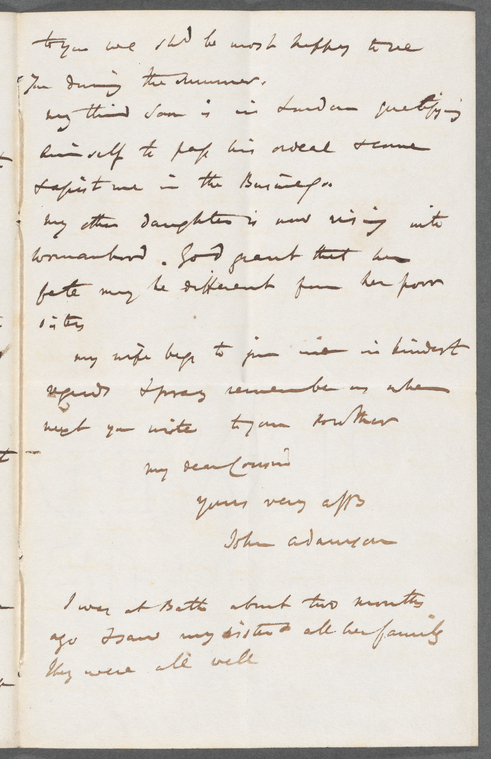 to you we shd be most happy to see
you during the summer.
my third Son is in London qualifying
himself to pass his ordeal & come
& assist me in the Business.
my other daughter is now rising into
womanhood. God grant that her
fate may be different from her poor
sister
my wife begs to join me in kindest
regards & pray remember us when
next you write to your Brother
my dear Cousin
yours very affly
John Adamson
I was at Bath about two months
ago & saw my sister & all her family
they were all well